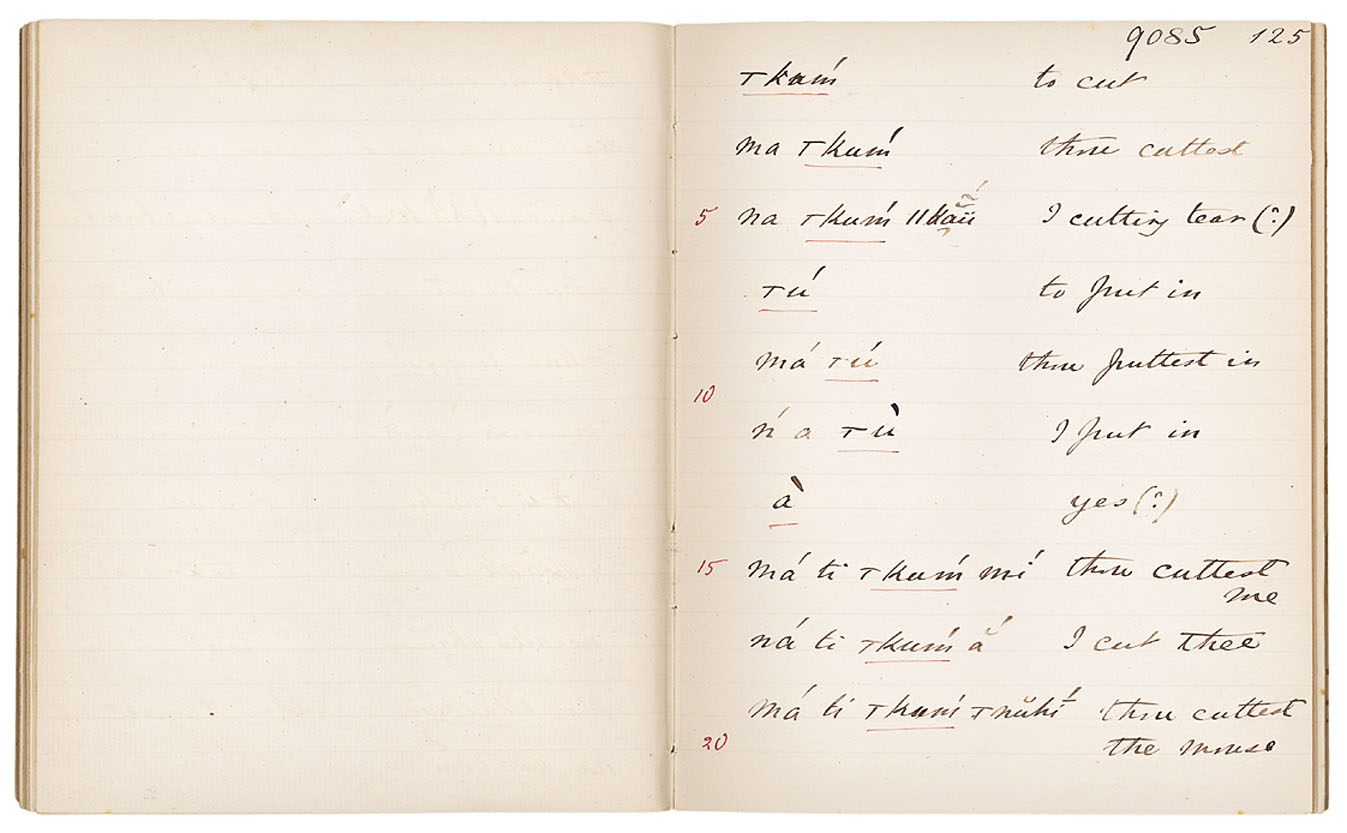 9085 125
ᴛkuḿ to cut
ma ᴛkuḿ thou cuttest
5 na ᴛkuḿ ǁkãũ I cutting tear (?)
ᴛú to put in
má ᴛú thou puttest in
10
ń a ᴛù I put in
à yes (?)
15 má ti ᴛkuḿ mí thou cuttest
me
ná ti ᴛkuḿ ắ I cut thee
má ti ᴛkuḿ ᴛnŭhí thou cuttest
20 the mouse